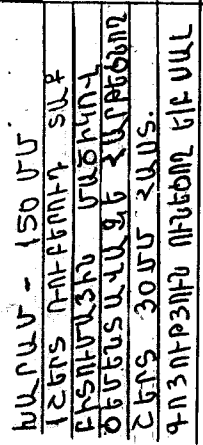 ԽԱՐԱՄ - 150 ՄՄ
1 ՇԵՐՏ ՌՈՒԲԵՐՈՒԴ ՏԱՔ
ԲԻՏՈՒՄԱՅԻՆ ՄԱԾԻԿՈՎ
ՑԵՄԵՆՏԱՎԱԶԵ ՀԱՐԹԵՑՆՈՂ
ՇԵՐՏ 30ՄՄ ՀԱՍՏ.
ԳՈՅՈՒԹՅՈՒՆ ՈՒՆԵՑՈՂ Ե/Բ ՍԱԼ